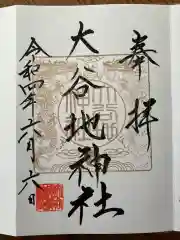 奉拝
大谷地神社
令和四年六月六日